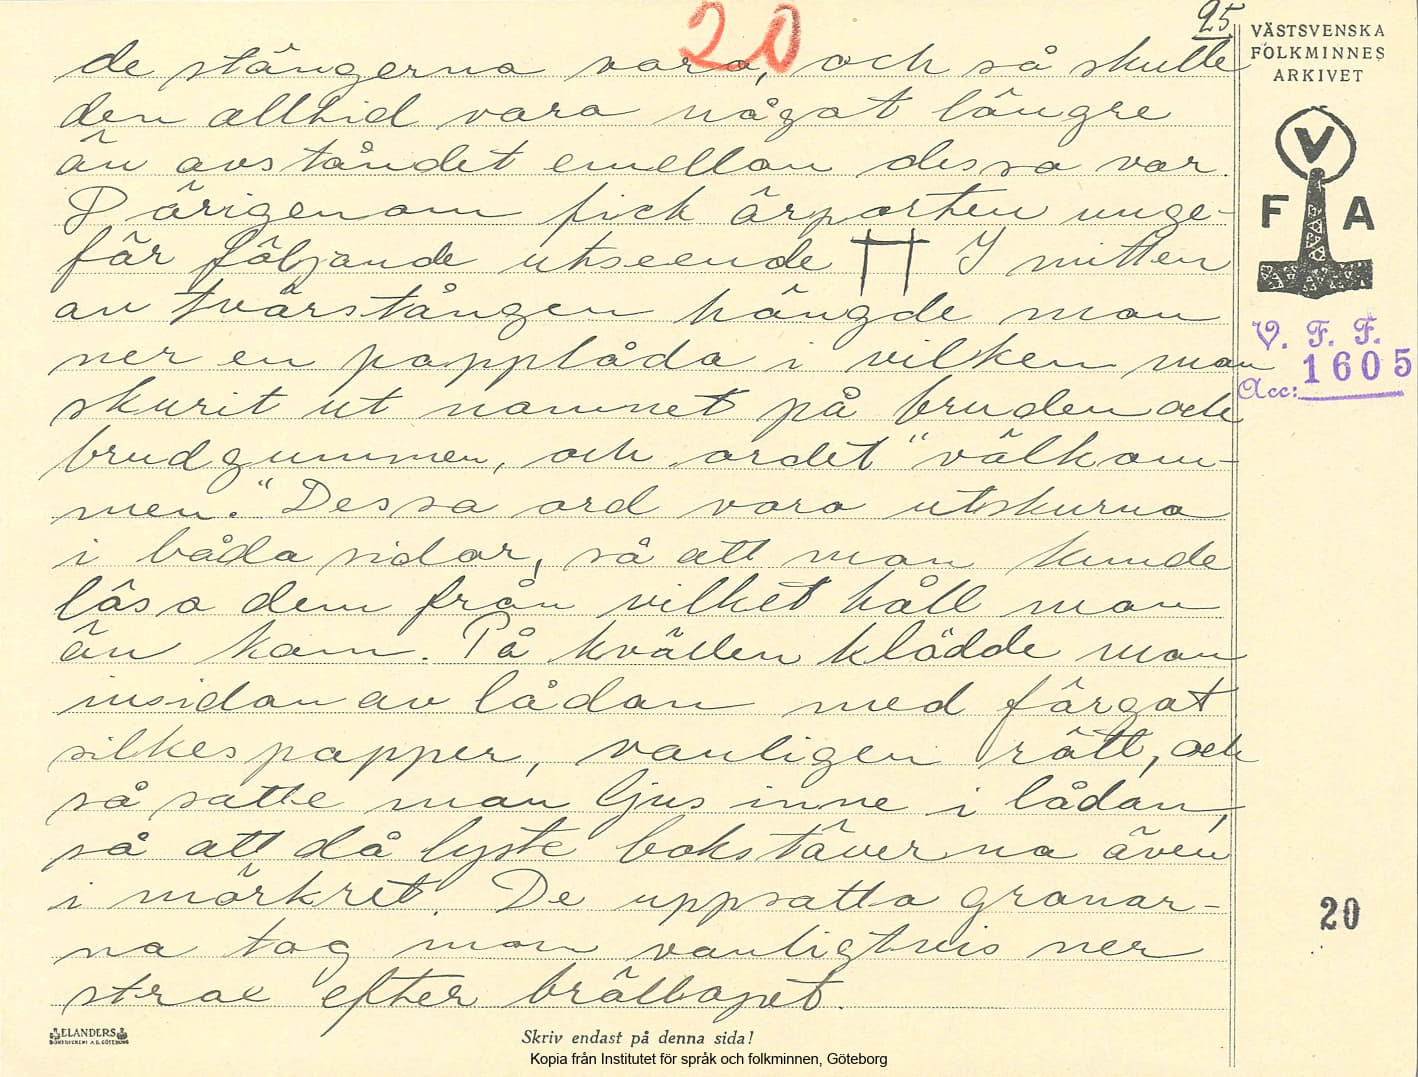 20
25.
VÄSTSVENSKA
FOLKMINNES
ARKIVET
V
F A
V. F. F.
Acc: 1605
de stängerna vara, och så skulle
den alltid vara något längre
än avståndet emellan dessa var.
Därigenom fick ärporten unge-
fär följande utseende I mitten
av tvärstången hängde man
ner en papplåda i vilken man
skurit ut namnet på bruden och
brudgummen, och ordet "välkom-
men." Dessa ord voro utskurna
i båda sidor, så att man kunde
läsa dem från vilket håll man
än kom. På kvällen klädde man
insidan av lådan med färgat
silkespapper, vanligen rött, och
så satte man ljus inne i lådan,
så att då lyste bokstäverna även
i mörkret. De uppsatta granar-
na tog man vanligtvis ner
strax efter bröllopet.
20
ELANDERS
BOKTRYCKERI A.B. GÖTEBORG
Skriv endast på denna sida!
Kopia från Institutet för språk och folkminnen, Göteborg